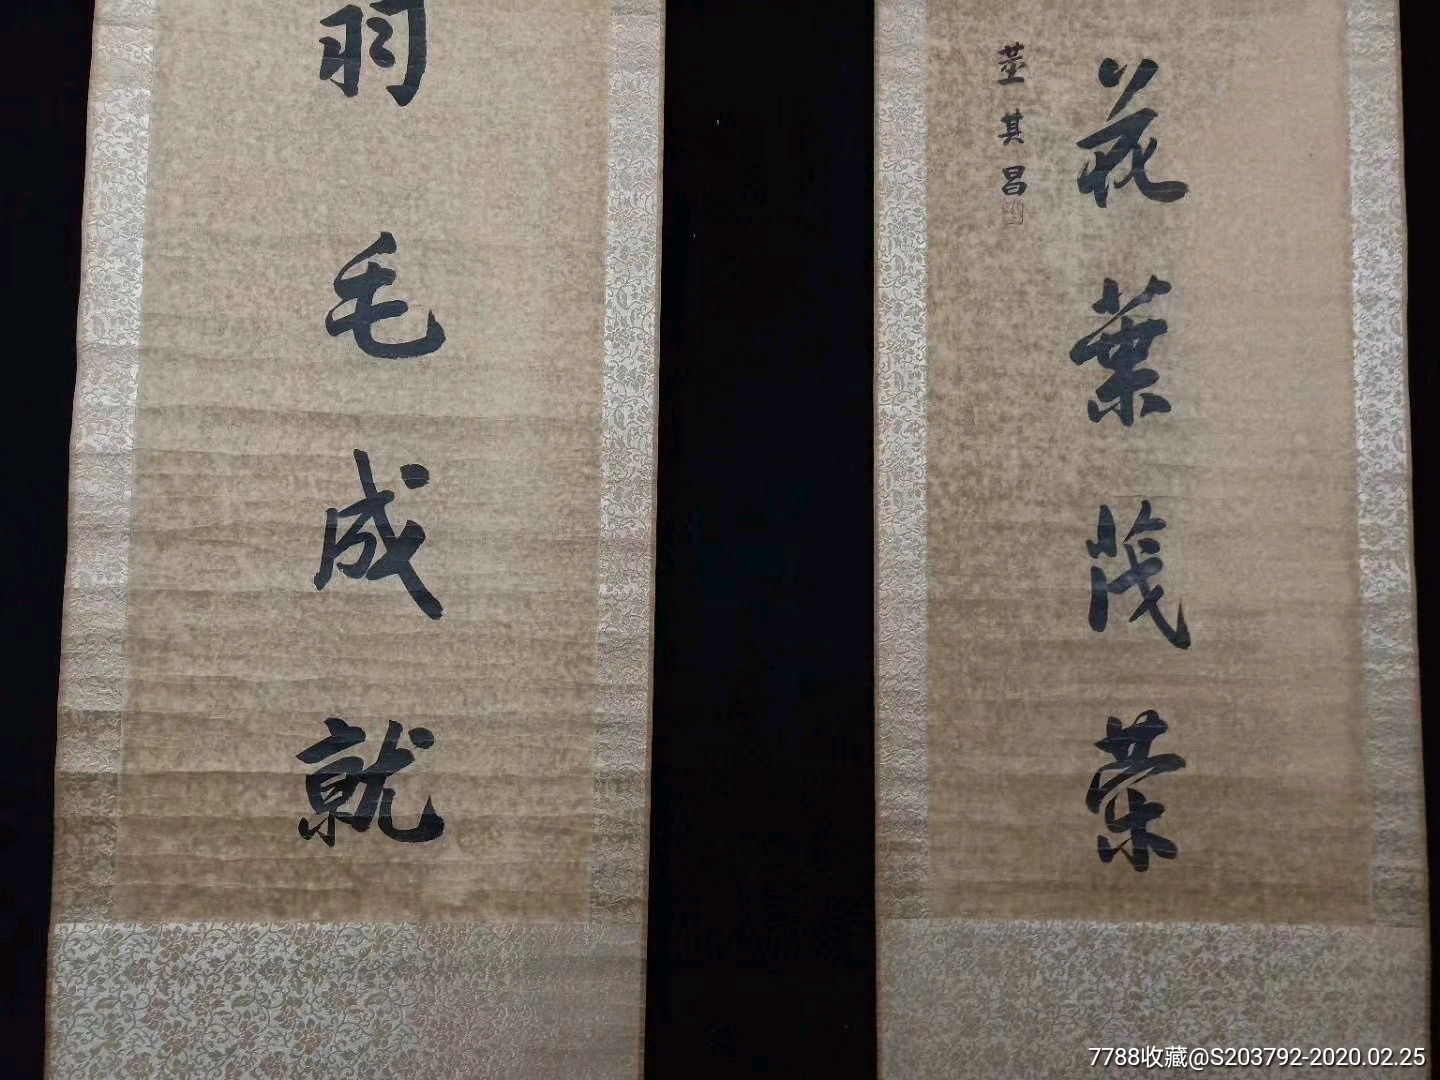 花葉茂榮
董其昌
羽毛成就
7788收藏@S203792-2020.02.25